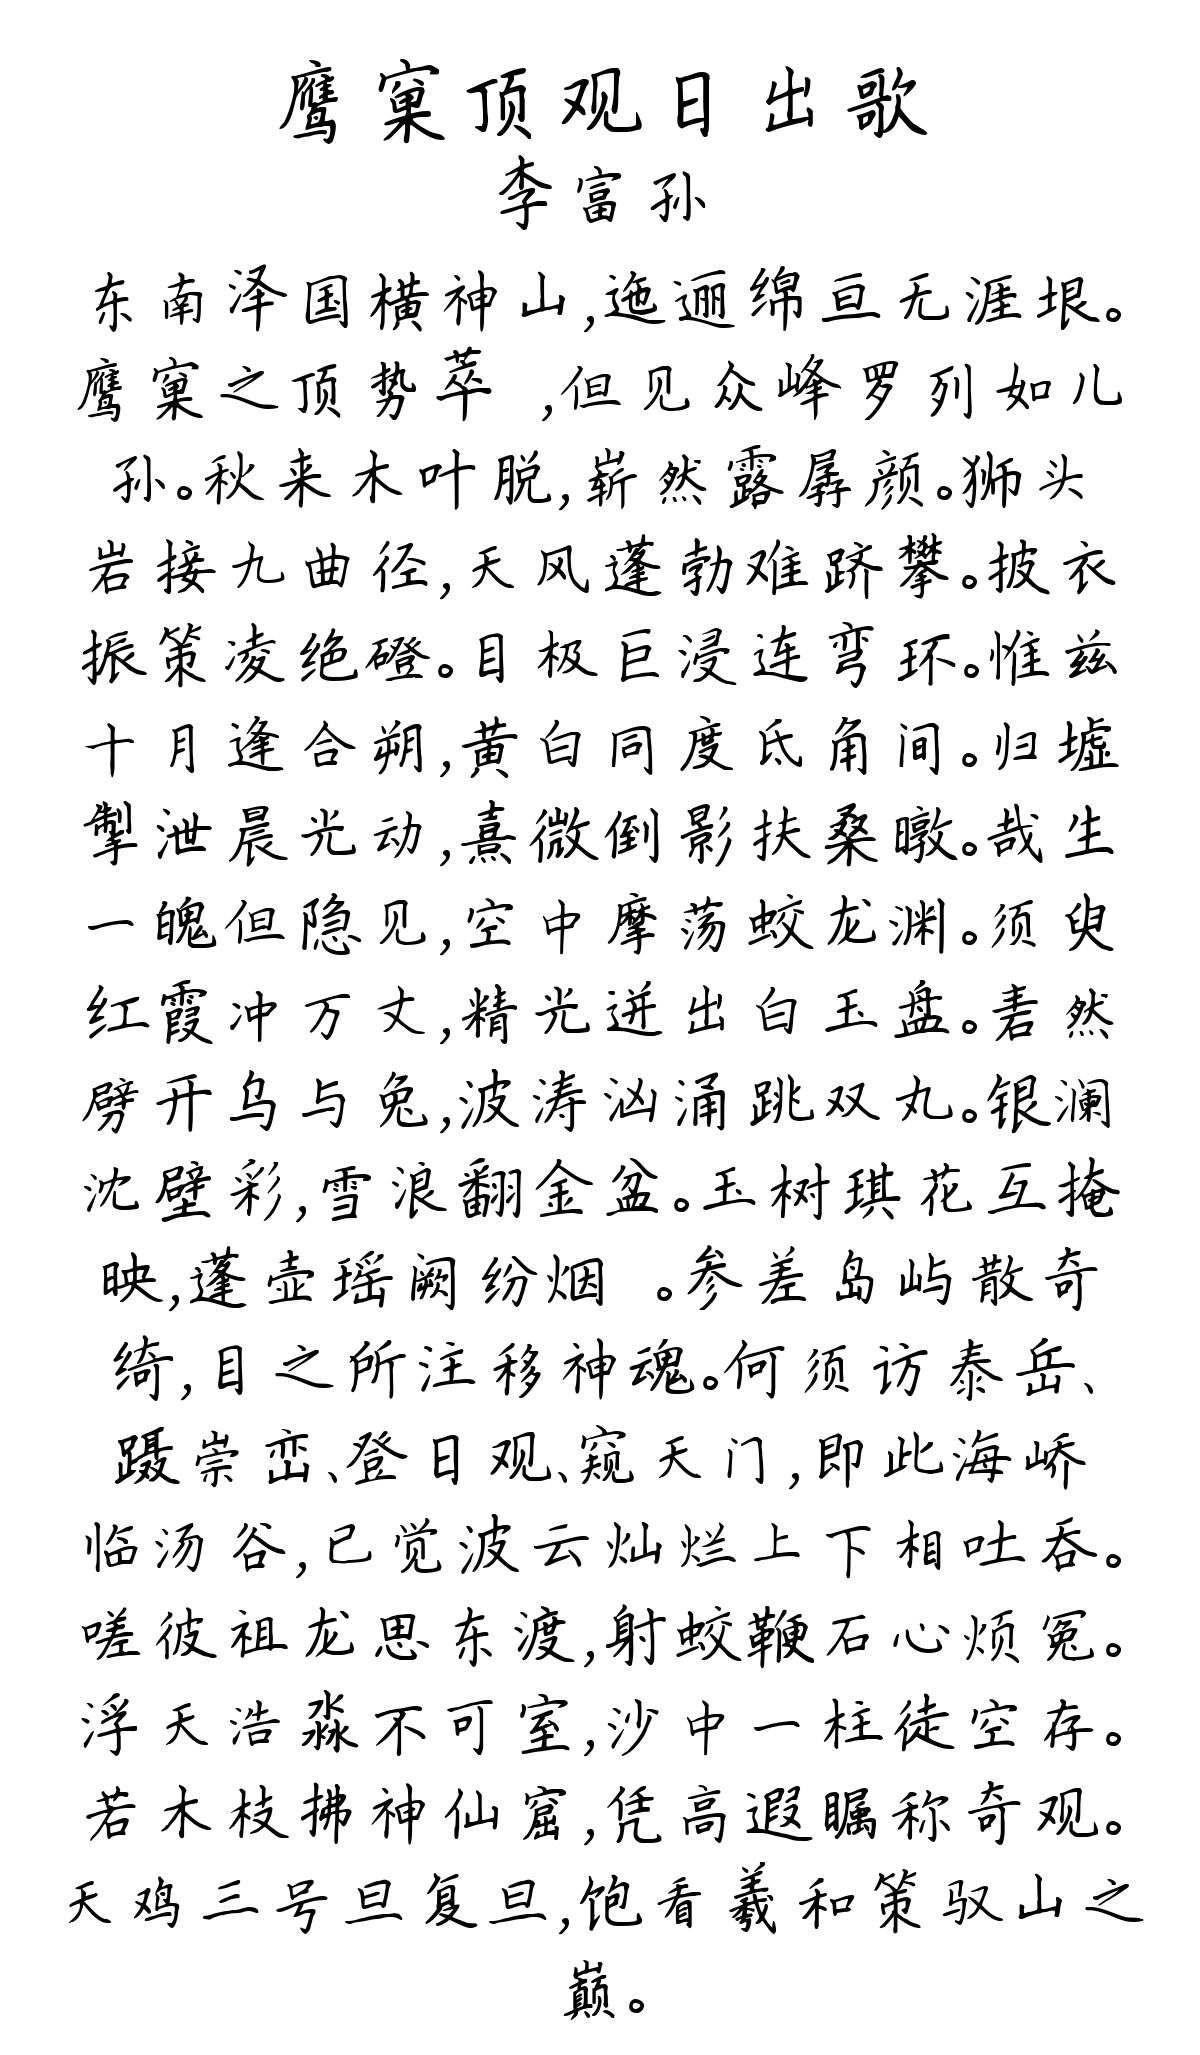 鹰窠顶观日出歌
李富孙
东南泽国横神山,迤逦绵亘无涯垠。
鹰窠之顶势萃 ,但见众峰罗列如儿
孙。秋来木叶脱,崭然露孱颜。狮头
岩接九曲径,天风蓬勃难跻攀。披衣
振策凌绝磴。目极巨浸连弯环。惟兹
十月逢合朔,黄白同度氐角间。归墟
掣泄晨光动,熹微倒影扶桑暾。哉生
一魄但隐见,空中摩荡蛟龙渊。须臾
红霞冲万丈,精光迸出白玉盘。砉然
劈开乌与兔,波涛汹涌跳双丸。银澜
沈壁彩,雪浪翻金盆。玉树琪花互掩
映,蓬壶瑶阙纷烟 。参差岛屿散奇
绮,目之所注移神魂。何须访泰岳、
蹑崇峦、登日观、窥天门,即此海峤
临汤谷,已觉波云灿烂上下相吐吞。
嗟彼祖龙思东渡,射蛟鞭石心烦冤。
浮天浩淼不可室,沙中一柱徒空存。
若木枝拂神仙窟,凭高遐瞩称奇观。
天鸡三号旦复旦,饱看羲和策驭山之
巅。